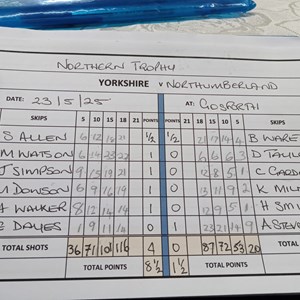 NORTHERN TROPHY
YORKSHIRE v NORTHUMBERLAND
DATE: 23/5/25 AT: GOSFORTH
SKIPS 5 10 15 18 21 POINTS POINTS 21 18 15 10 5 SKIPS
S ALLEN 6 12 ½ ½ B WARE
M WATSON 6 14 23 1 0 6 6 6 3 D TAYL
J SIMPSON 9 15 19 21 1 0 12 8 5 1 C CARD
M DOWSON 6 9 16 19 1 0 13 11 9 2 K MIL
A WALKER 8 12 14 1 0 12 9 5 1 H SMI
DAVIES 1 9 11 0 1 23 21 14 9 A STEV
TOTAL SHOTS 36 71 101 116 4 0 87 72 53 20 TOTAL SHO
TOTAL POINTS 8½ 1½ TOTAL POINTS